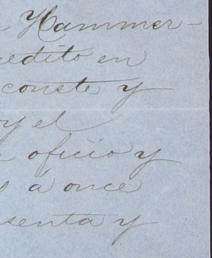 Hammer-
edito en
conste y
oy el
oficio y
s á once
senta y